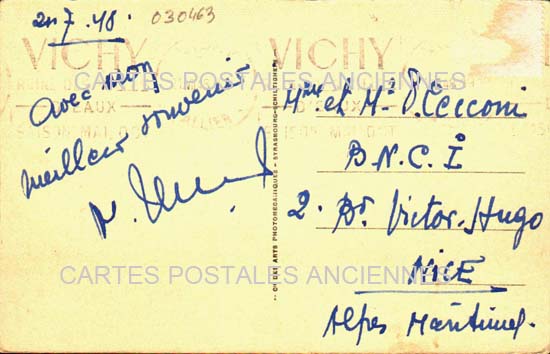 2.7.48.
030463
VICHY
VICHY
CARTES POSTALES ANCIENNES
avec mon
meilleur souvenir
Mme et Mr P. Cecconi
B.N.C.I
2. Bd Victor-Hugo
NICE
Alpes Maritimes.
CARTES POSTALES ANCIENNES
Cie DES ARTS PHOTOMECANIQUES - STRASBOURG-SCHILTIGHEIM